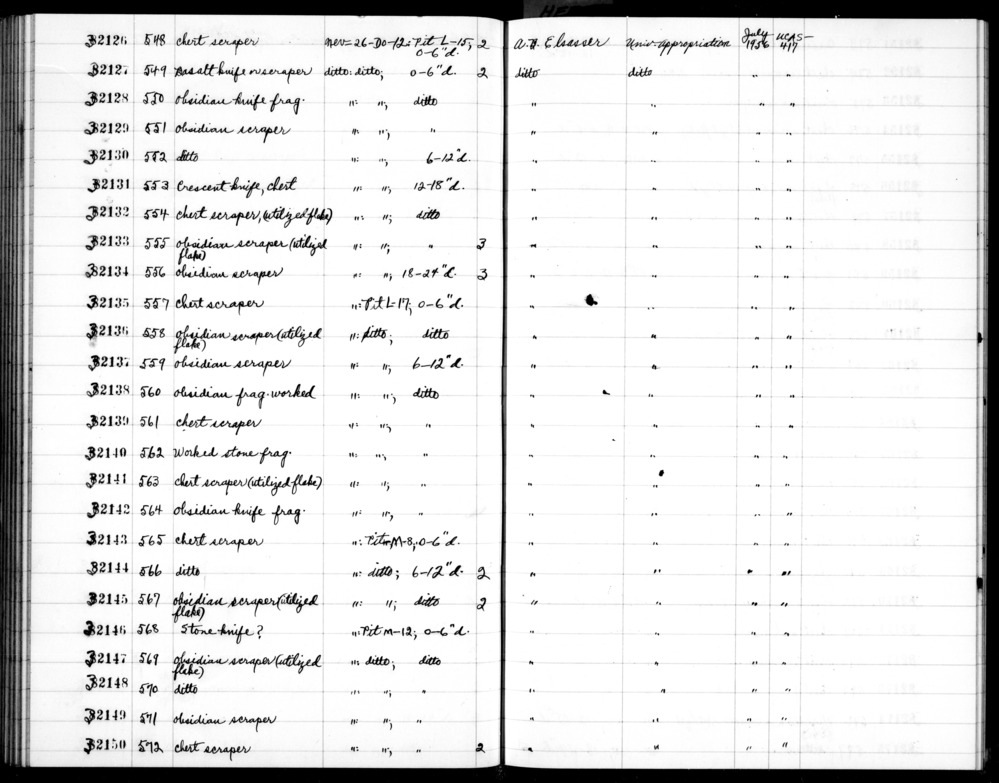 32126 548 chert scraper Nev=26-Do-12: Pit L-15; 0-6"d. 2 A. B. Elsasser Univ. Appropriation July 1956 UCAS-417
32127 549 basalt knife or scraper ditto: ditto; 0-6"d. 2 ditto ditto " "
32128 550 obsidian knife frag. ": "; ditto " " " "
32129 551 obsidian scraper ": "; " " " " "
32130 552 ditto ": "; 6-12"d. " " " "
32131 553 Crescent knife, chert ": "; 12-18"d. " " " "
32132 554 chert scraper, (utilized flake) ": "; ditto " " " "
32133 555 obsidian scraper (utilized flake) ": "; " 3 " " " "
32134 556 obsidian scraper ": "; 18-24"d. 3 " " " "
32135 557 chert scraper ": Pit L-17; 0-6"d. " " " "
32136 558 obsidian scraper (utilized flake) ": ditto; ditto " " " "
32137 559 obsidian scraper ": "; 6-12"d. " " " "
32138 560 obsidian frag. worked ": "; ditto " " " "
32139 561 chert scraper ": "; " " " " "
32140 562 Worked stone frag. ": "; " " " " "
32141 563 chert scraper (utilized flake) ": "; " " " " "
32142 564 obsidian knife frag. ": "; " " " " "
32143 565 chert scraper ": Pit-M-8; 0-6"d. " " " "
32144 566 ditto ": ditto; 6-12"d. 2 " " " "
32145 567 obsidian scraper (utilized flake) ": "; ditto 2 " " " "
32146 568 Stone knife? ": Pit M-12; 0-6"d. " " " "
32147 569 obsidian scraper (utilized flake) ": ditto; ditto " " " "
32148 570 ditto ": "; " " " " "
32149 571 obsidian scraper ": "; " " " " "
32150 572 chert scraper ": "; " 2 " " " "